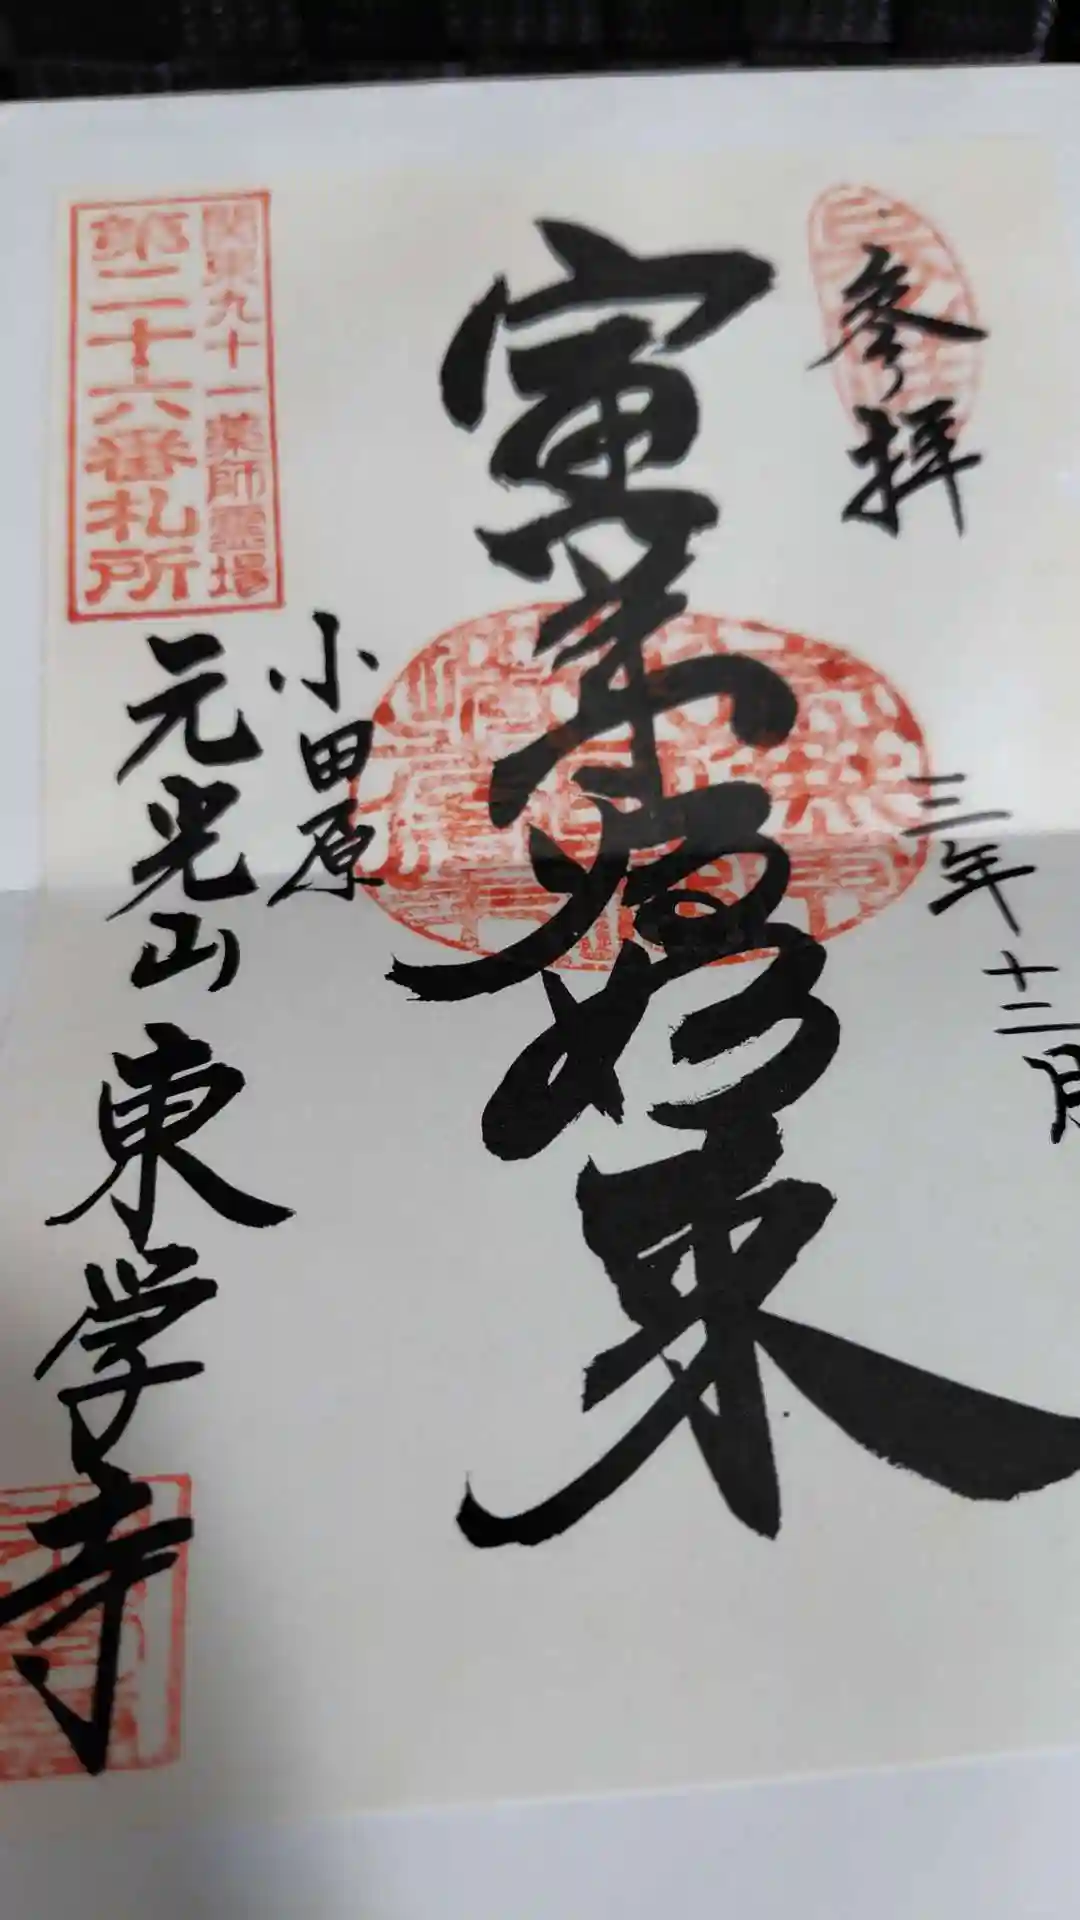 参拝
三年十二月
寅薬師如来
関東九十一薬師霊場
第二十六番札所
小田原
元光山
東学寺